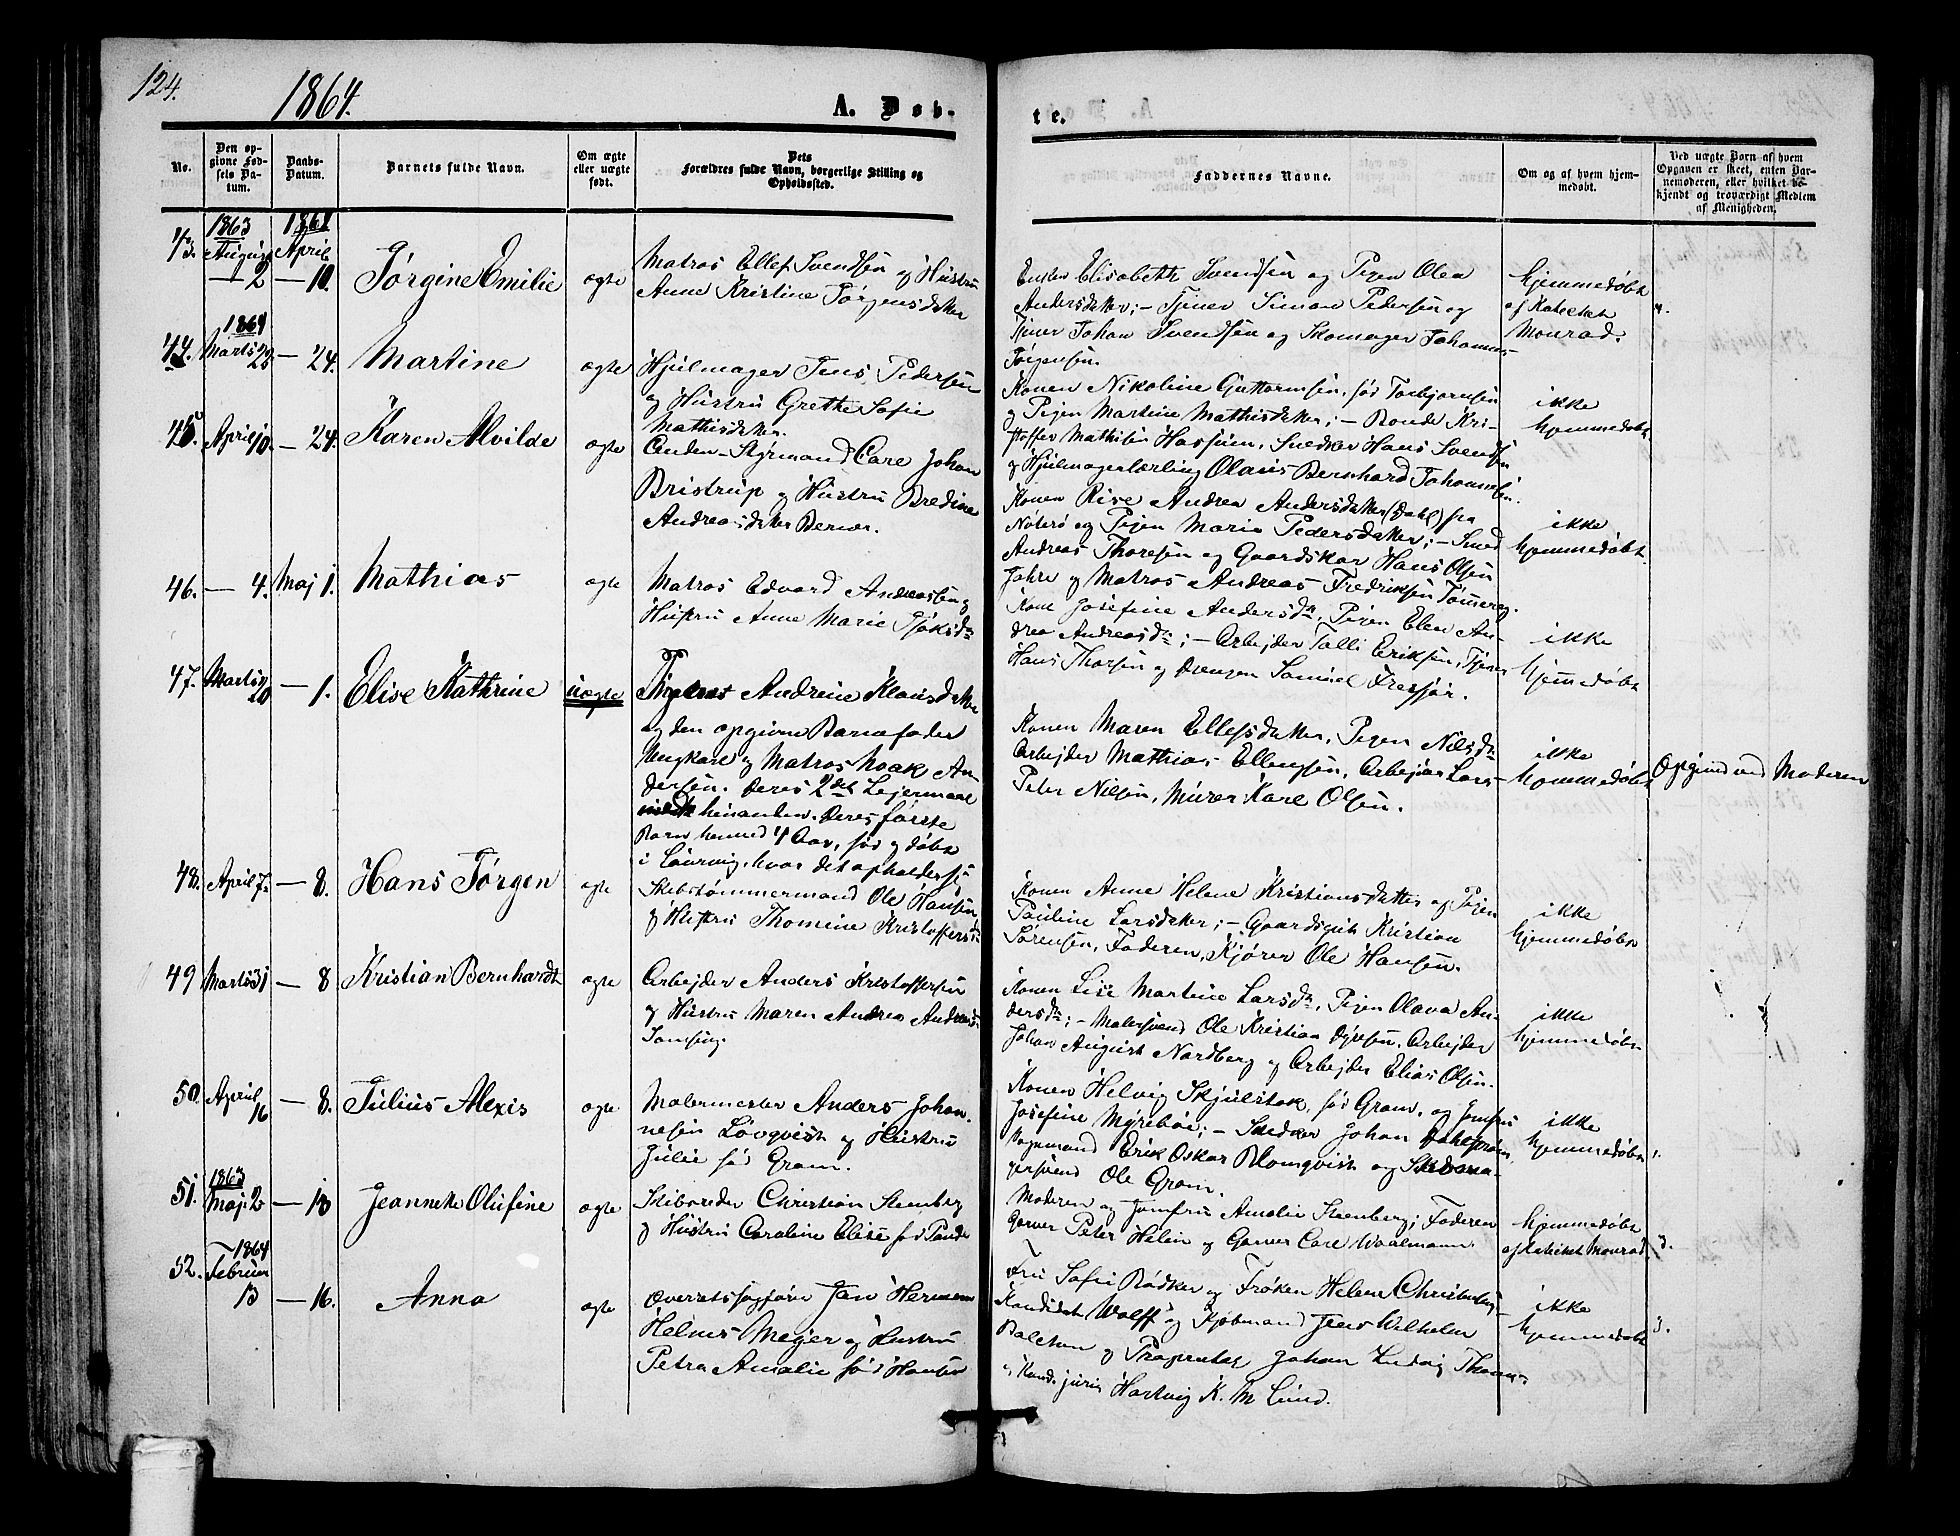 124.
1864.
A. Døb-
te.
No.
Den op-
givne Fød-
sels Da-
tum.
Daabs-
Datum.
Barnets fulde Navn.
Om ægte
eller uægte
født.
Dets
Forældres fulde Navn, borgerlige Stilling og
Opholdssted.
Faddernes Navne.
Om og af hvem hjem-
medøbt.
Ved uægte Børn af hvem
Opgaven er skeet, enten Bar-
nemoderen, eller hvilket be-
kjendt og troværdigt Medlem
af Menigheden.
43. 1863 August 2 1864 April 10. Jørgine Emilie ægte
Matros Ellef Svendsen og Hustru
Anne Kristine Jørgensdatter
Enken Elisabeth Svendsen og Pigen Olea
Andersdatter; - Tjener Simon Pedersen og
Tjener Johan Svendsen og Skomager Johannes
Jørgensen.
hjemmedøbt
af Katechet
Monrad.
44. 1864 Marts 22 - 24. Martine ægte
Hjulmager Jens Pedersen
og Hustru Grethe Sofie
Mathisdatter.
Konen Nikoline Guttormsen, fød Torbjørnsen
og Pigen Martine Mathisdatter; - Bonde Kri-
stoffer Mathisen Hassum, Snedker Hans Svendsen
og Hjulmagerlærling Olaus Bernhard Johannesen.
ikke
hjemmedøbt
45. April 10. - 24. Karen Alvilde ægte
Anden-Styrmand Carl Johan
Bristrup og Hustru Bredine
Andreasdatter Berver.
Konen Rise Andrea Andersdatter (Dahl) fra
Nøterø og Pigen Maria Pedersdatter; - Smed
Andreas Thoresen og Gaardskar Hans Olsen
Jahre og Matros Andreas Fredriksen Tømmerog.
ikke
hjemmedøbt.
46. - 4. Maj 1. Mathias ægte
Matros Edvard Andreasen og
Hustru Anne Marie
Kone Josefine Andersdr, Pigen Elen An-
drea Andreasdr; - Arbejder Talli Eriksen, Tjener
Hans Thorsen og Drengen Samuel
ikke
hjemmedøbt
47. Marts 20 - 1. Elise Kathrine uægte
Andreine Klausdatter
og den opgivne Barnefader
Ungkarl og Matros Noak An-
dersen. Deres 2det Lejermaal
med hinanden. Deres første
Barn henved 4 Aar, fød og døbt
i Laurvig, hvor det opholder sig
Konen Maren Ellefsdatter, Pigen Nilsdr
Arbejder Mathias Ellengsen, Arbejder Lars
Peter Nilsen, Murer Karl Olsen.
ikke
hjemmedøbt
Opgivet ved Moderen
48. April 7. - 8. Hans Jørgen ægte
Skibstømmermand Ole Hansen
og Hustru Thomine Kristoffersdr
Konen Anne Helene Kristiansdatter og Pigen
Pauline Larsdatter; - Gaardsgut Kristian
Sørensen, Faderen, Kjører Ole Hansen.
ikke
hjemmedøbt
49 Marts 31 - 8 Kristian Bernhardt ægte
Arbejder Anders Kristoffersen
og Hustru Maren Andrea
Konen Lise Martine Larsdr, Pigen Olava An-
dersdr; - Malersvend Ole Kristian Dyresen, Arbejder
Johan August Nordberg og Arbejder Elias Olsen.
ikke
hjemmedøbt
50. April 16 - 8. Julius Alexis ægte
Malermester Anders Johan-
nesen Løvqvist og Hustru
Julie fød Gram.
Konen Helvig Skjulstok, fød Gram, og Jomfru
Josefine Myrebøe; - Snedker Johan Dahlstrøm,
Erik Oskar Blomqvist og
gersvend Ole Gram.
ikke
hjemmedøbt
51. 1863 Maj 2 - 13 Jeannette Olufine ægte
Skibsreder Christian Stenberg
og Hustru Caroline Elise fød
Moderen og Jomfru Amalie Stenberg; Faderen
Garver Peter Helin og Garver Carl Waalmann
hjemmedøbt
af Katechet Monrad
52. 1864 Februar 13 - 16. Anna ægte
Overretssagfører Jan Herman
Helmers Mejer og Hustru
Petra Amalie fød Hansen
Fru Sofie Bødker og Frøken Helene Christensen
Kandidat Wolff og Kjøbmand Jens Wilhelm
Balchen og Proprietær Johan Ludvig
og Kand. juris Hartvig K. M Lund.
ikke
hjemmedøbt